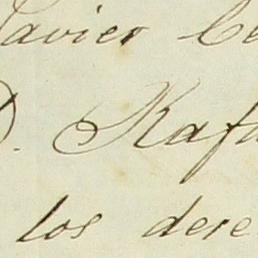 Javier Ce
D. Rafa
los dere